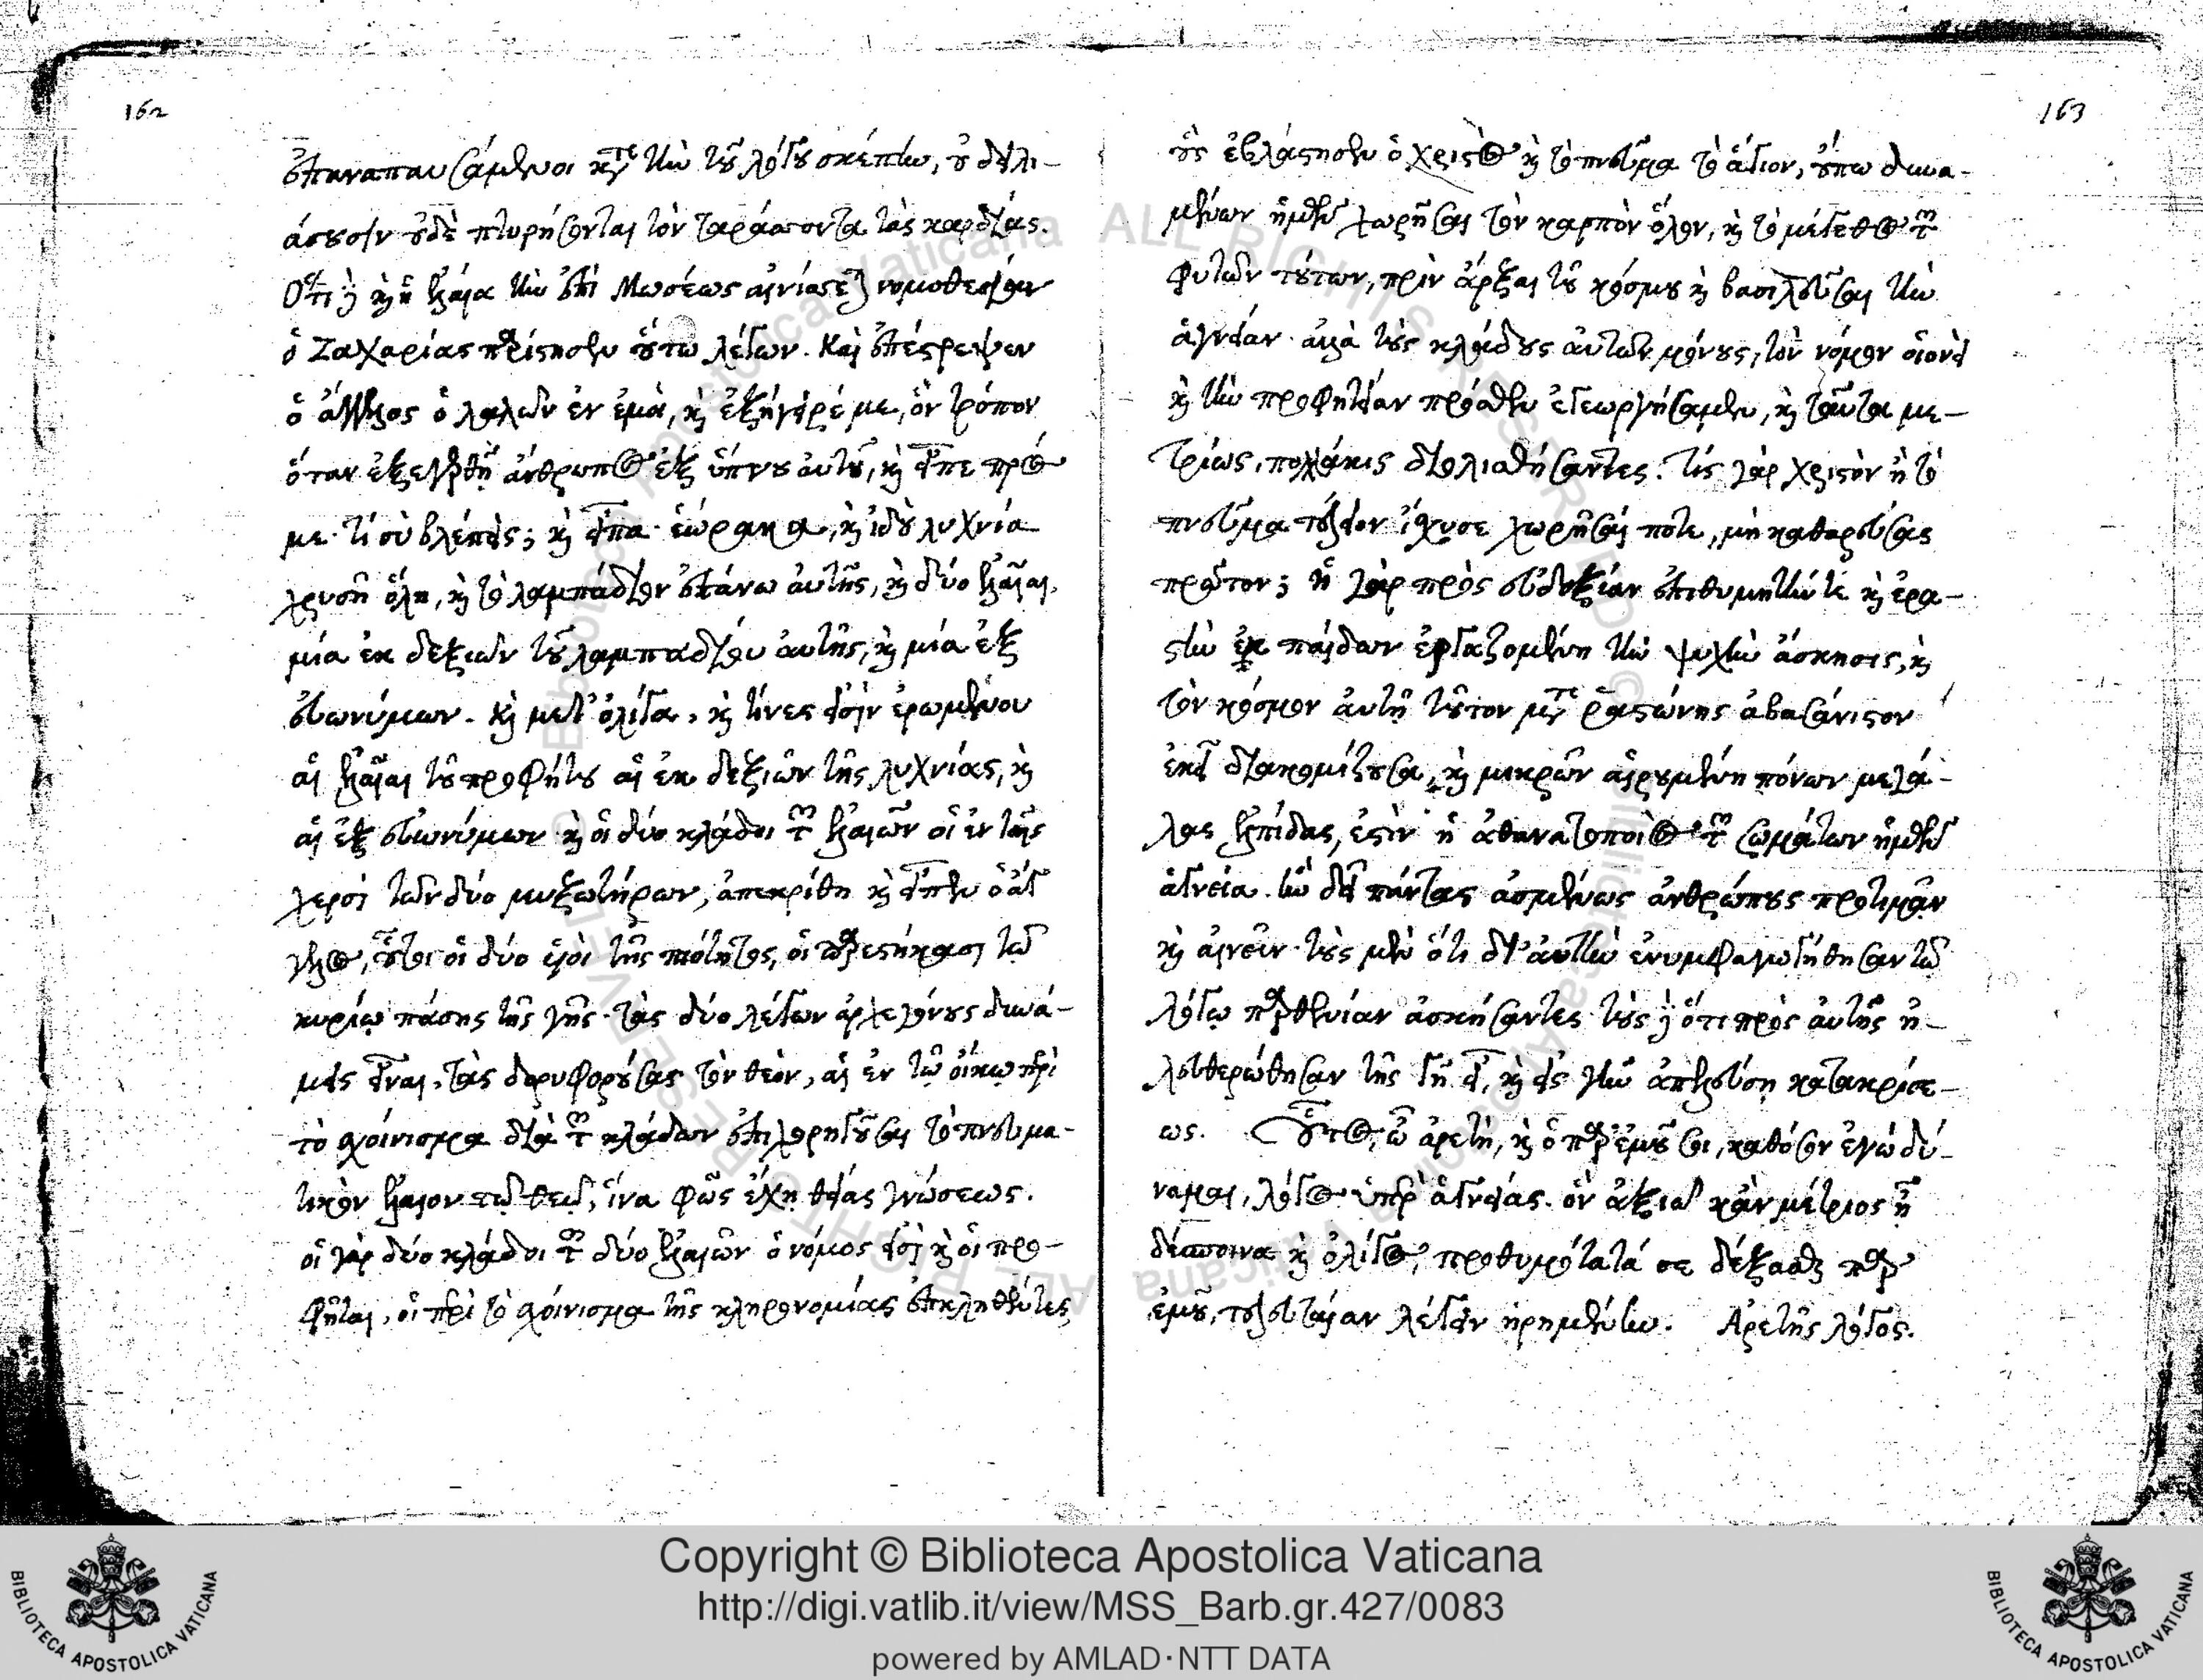 162
ἐπαναπαυσάμενοι κατὰ τὴν τοῦ λόγου σκέπην, οὐ δειλι-
άσουσιν οὐδὲ πτυρήσονται τὸν ταράσσοντα τὰς καρδίας.
Ὅτι δὲ καὶ ἡ ἐλαία τὴν ἐπὶ Μωσέως αἰνίσσεται νομοθεσίαν
ὁ Ζαχαρίας παρίστησιν οὕτω λέγων. Καὶ ἐπέστρεψεν
ὁ ἄγγελος ὁ λαλῶν ἐν ἐμοὶ, καὶ ἐξήγειρέ με, ὃν τρόπον
ὅταν ἐξεγερθῇ ἄνθρωπος ἐξ ὕπνου αὐτοῦ, καὶ εἶπε πρός
με· τί σὺ βλέπεις; καὶ εἶπα· ἑώρακα, καὶ ἰδοὺ λυχνία
χρυσῆ ὅλη, καὶ τὸ λαμπάδιον ἐπάνω αὐτῆς, καὶ δύο ἐλαῖαι,
μία ἐκ δεξιῶν τοῦ λαμπαδίου αὐτῆς, καὶ μία ἐξ
εὐωνύμων. καὶ μετ' ὀλίγα, καὶ τίνες εἰσὶν ἐρωμένου
αἱ ἐλαῖαι τοῦ προφήτου αἱ ἐκ δεξιῶν τῆς λυχνίας, καὶ
αἱ ἐξ εὐωνύμων καὶ οἱ δύο κλάδοι τῶν ἐλαιῶν οἱ ἐν ταῖς
χερσὶ τῶν δύο μυξωτήρων, ἀπεκρίθη καὶ εἶπεν ὁ ἄγ
γελος, οὗτοι οἱ δύο υἱοὶ τῆς πιότητος, οἳ παρεστήκασι τῷ
κυρίῳ πάσης τῆς γῆς· τὰς δύο λέγων ἀρχεγόνους δυνά-
μεις εἶναι, τὰς δορυφορούσας τὸν θεὸν, αἳ ἐν τῷ οἴκῳ περὶ
τὸ σχοίνισμα διὰ τῶν κλάδων ἐπιχορηγοῦσαι τὸ πνευμα-
τικὸν ἔλαιον τῷ θεῷ, ἵνα φῶς ἔχῃ θείας γνώσεως.
οἱ γὰρ δύο κλάδοι τῶν δύο ἐλαιῶν ὁ νόμος εἰσὶ καὶ οἱ προ-
φῆται, οἱ περὶ τὸ σχοίνισμα τῆς κληρονομίας
163
οὓς ἐβλάστησεν ὁ χριστὸς καὶ τὸ πνεῦμα τὸ ἅγιον, οὔπω δυνα-
μένων ἡμῶν χωρῆσαι τὸν καρπὸν ὅλον, καὶ τὸ μέγεθος τῶν
φυτῶν τούτων, πρὶν ἄρξαι τοῦ κόσμου καὶ βασιλεῦσαι τὴν
ἁγνείαν· ἀλλὰ τοὺς κλάδους αὐτῶν μόνους, τὸν νόμον οἱονεὶ
καὶ τὴν προφητείαν πρόσθεν ἐγεωργήσαμεν, καὶ ταῦτα με-
τρίως, πολλάκις διολισθήσαντες. Τίς γὰρ χριστὸν ἢ τὸ
πνεῦμα τέλειον ἴσχυσε χωρῆσαί ποτε, μὴ καθαρεύσας
πρῶτον; ἡ γὰρ πρὸς εὐδοξίαν ἐπιθυμητήν τε καὶ ἐρα-
στὴν ἐκ παίδων ἐργαζομένη τὴν ψυχὴν ἄσκησις, καὶ
τὸν κόσμον αὐτῇ τοῦτον μετὰ ῥᾳστώνης ἀβασάνιστον
ἐκεῖ διακομίζουσα, καὶ μικρῶν αἱρουμένη πόνων μεγά-
λας ἐλπίδας, ἐστὶν ἡ ἀθανατοποιὸς τῶν σωμάτων ἡμῶν
ἁγνεία. ἣν δεῖ πάντας ἀσμένως ἀνθρώπους προτιμᾶν
καὶ αἰνεῖν· τοὺς μὲν ὅτι δι' αὐτὴν ἐνυμφαγωγήθησαν τῷ
λόγῳ παρθενίαν ἀσκήσαντες· τοὺς δὲ ὅτι πρὸς αὐτῆς ἠ-
λευθερώθησαν τῆς γῆ εἶ, καὶ εἰς γῆν ἀπελεύσῃ κατακρίσε-
ως. Οὗτος, ὦ ἀρετὴ, καὶ ὁ παρ' ἐμοῦ σοι, καθόσον ἐγὼ δύ-
ναμαι, λόγος ὑπὲρ ἁγνείας. ὃν ἀξιῶ κἂν μέτριος ᾖ
δέσποινα καὶ ὀλίγος, προθυμότατά σε δέξασθαι παρ'
ἐμοῦ, τελευταίαν λέγειν ᾑρημένην. Ἀρετῆς λόγος.
Copyright © Biblioteca Apostolica Vaticana
http://digi.vatlib.it/view/MSS_Barb.gr.427/0083
powered by AMLAD·NTT DATA
BIBLIOTECA APOSTOLICA VATICANA
BIBLIOTECA APOSTOLICA VATICANA